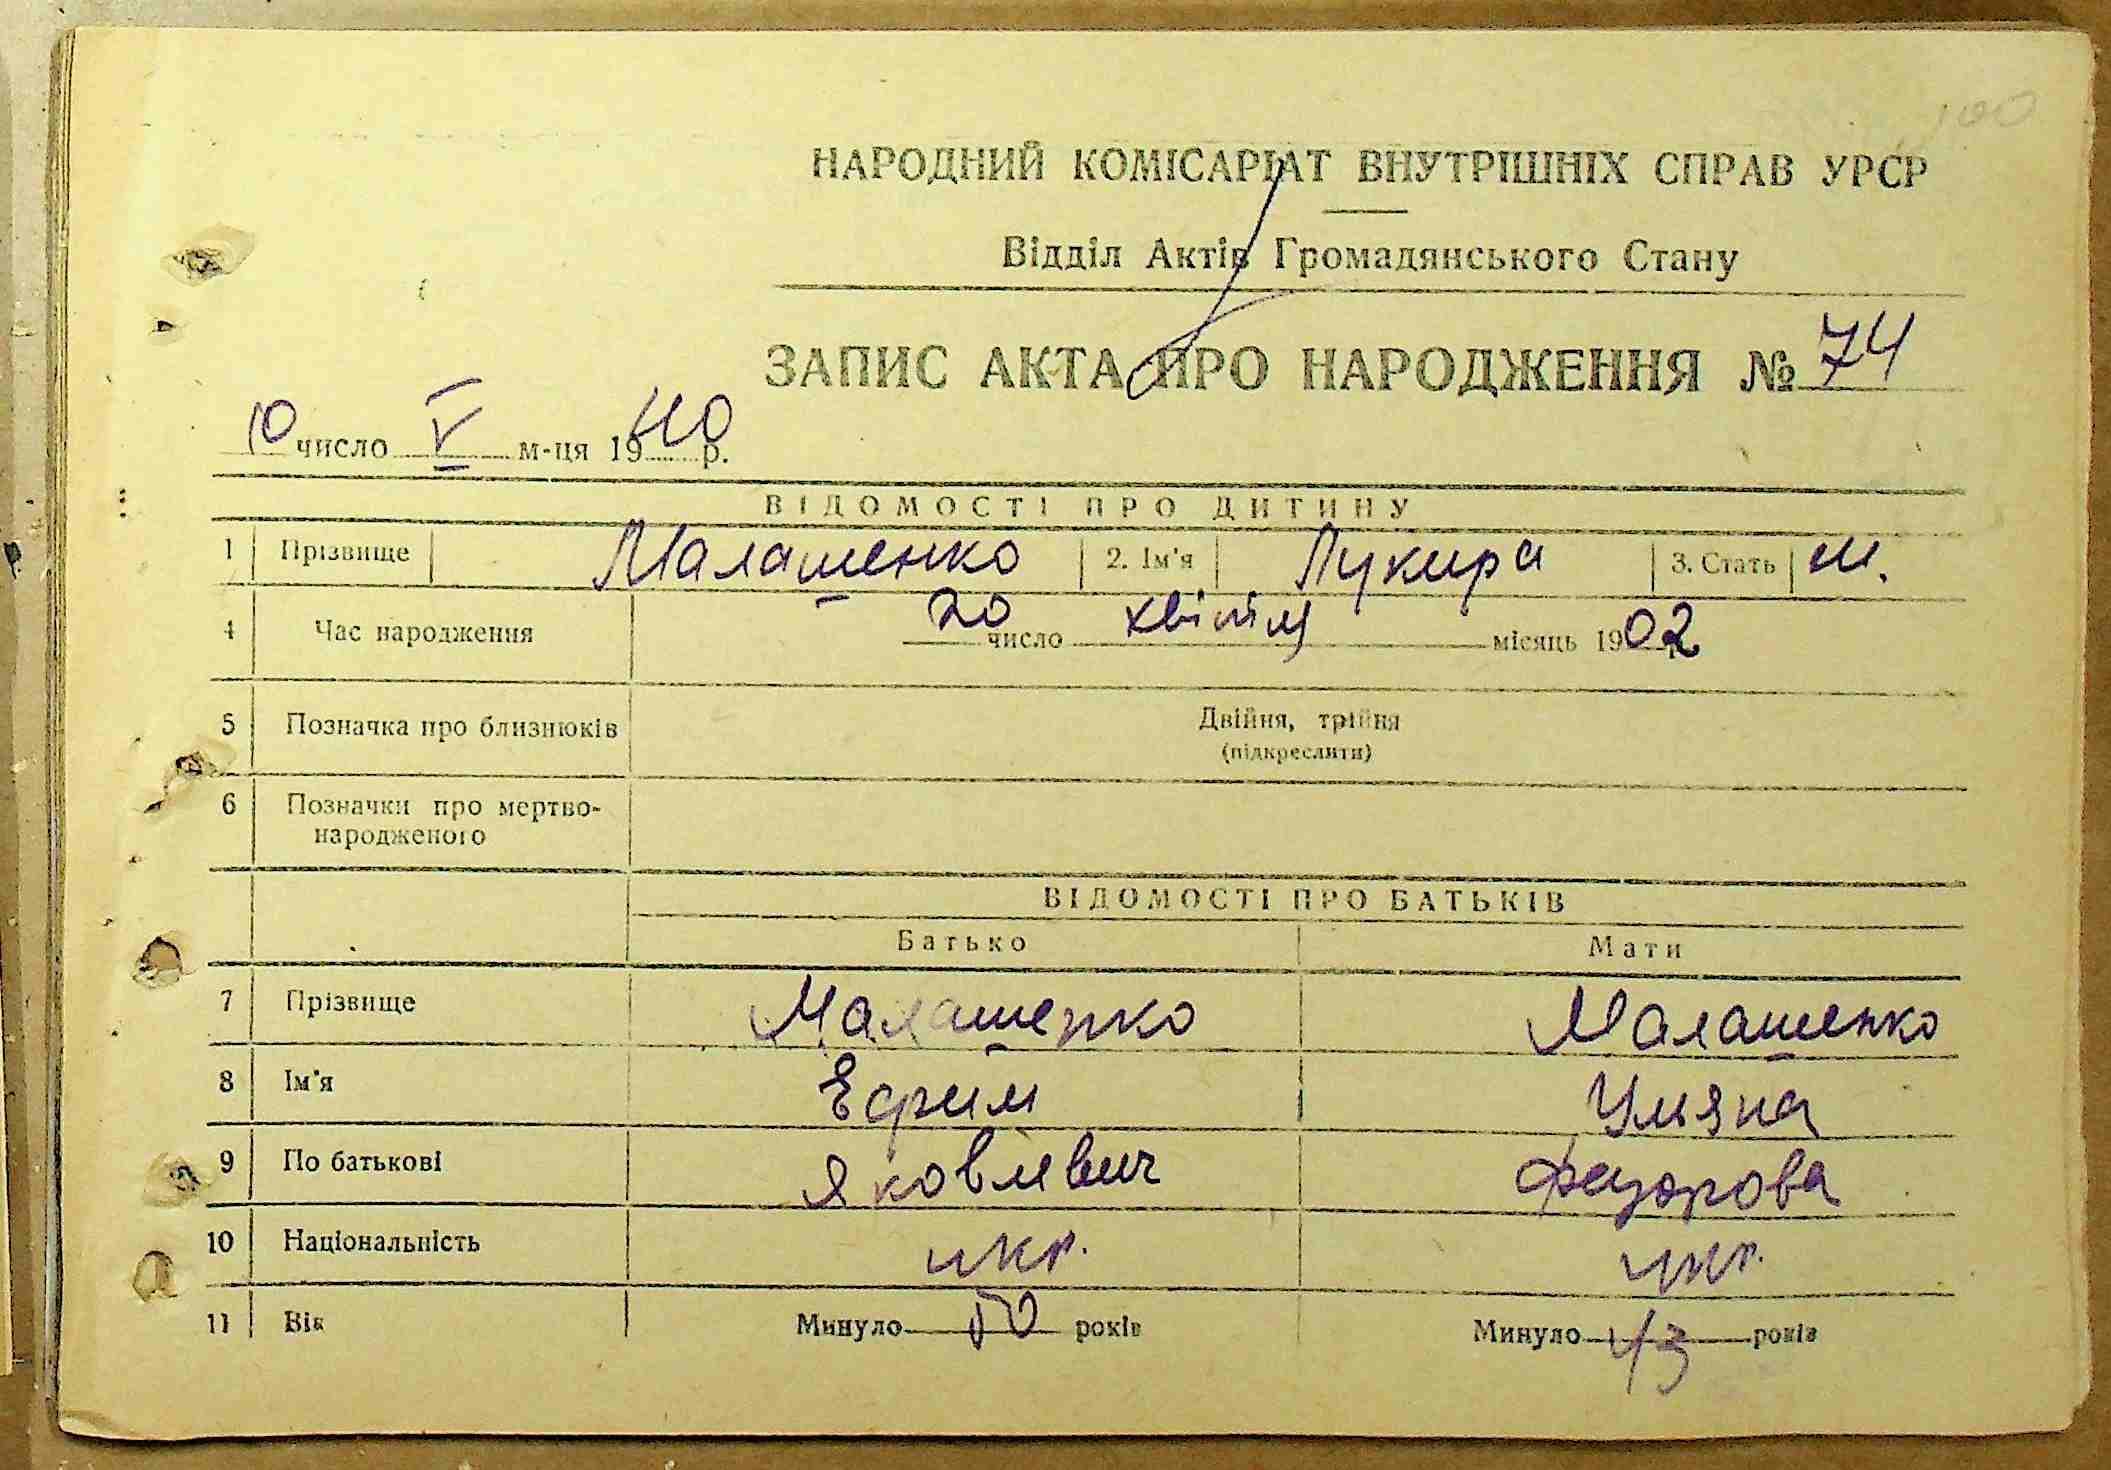 100
НАРОДНИЙ КОМІСАРІАТ ВНУТРІШНІХ СПРАВ УРСР
Відділ Актів Громадянського Стану
ЗАПИС АКТА ПРО НАРОДЖЕННЯ № 74
10 число V м-ця 1940 р.
ВІДОМОСТІ ПРО ДИТИНУ
1 Прізвище Малашенко 2. Ім'я Лукира 3. Стать
4 Час народження 20 число квітня місяць 1902
5 Позначка про близнюків Двійня, трійня
(підкреслити)
6 Позначки про мертво-
народженого
ВІДОМОСТІ ПРО БАТЬКІВ
Батько Мати
7 Прізвище Малашенко Малашенко
8 Ім'я Ефрим Ульяна
9 По батькові Яковлевич Федорова
10 Національність укр. укр.
11 Вік Минуло 50 років Минуло 43 років